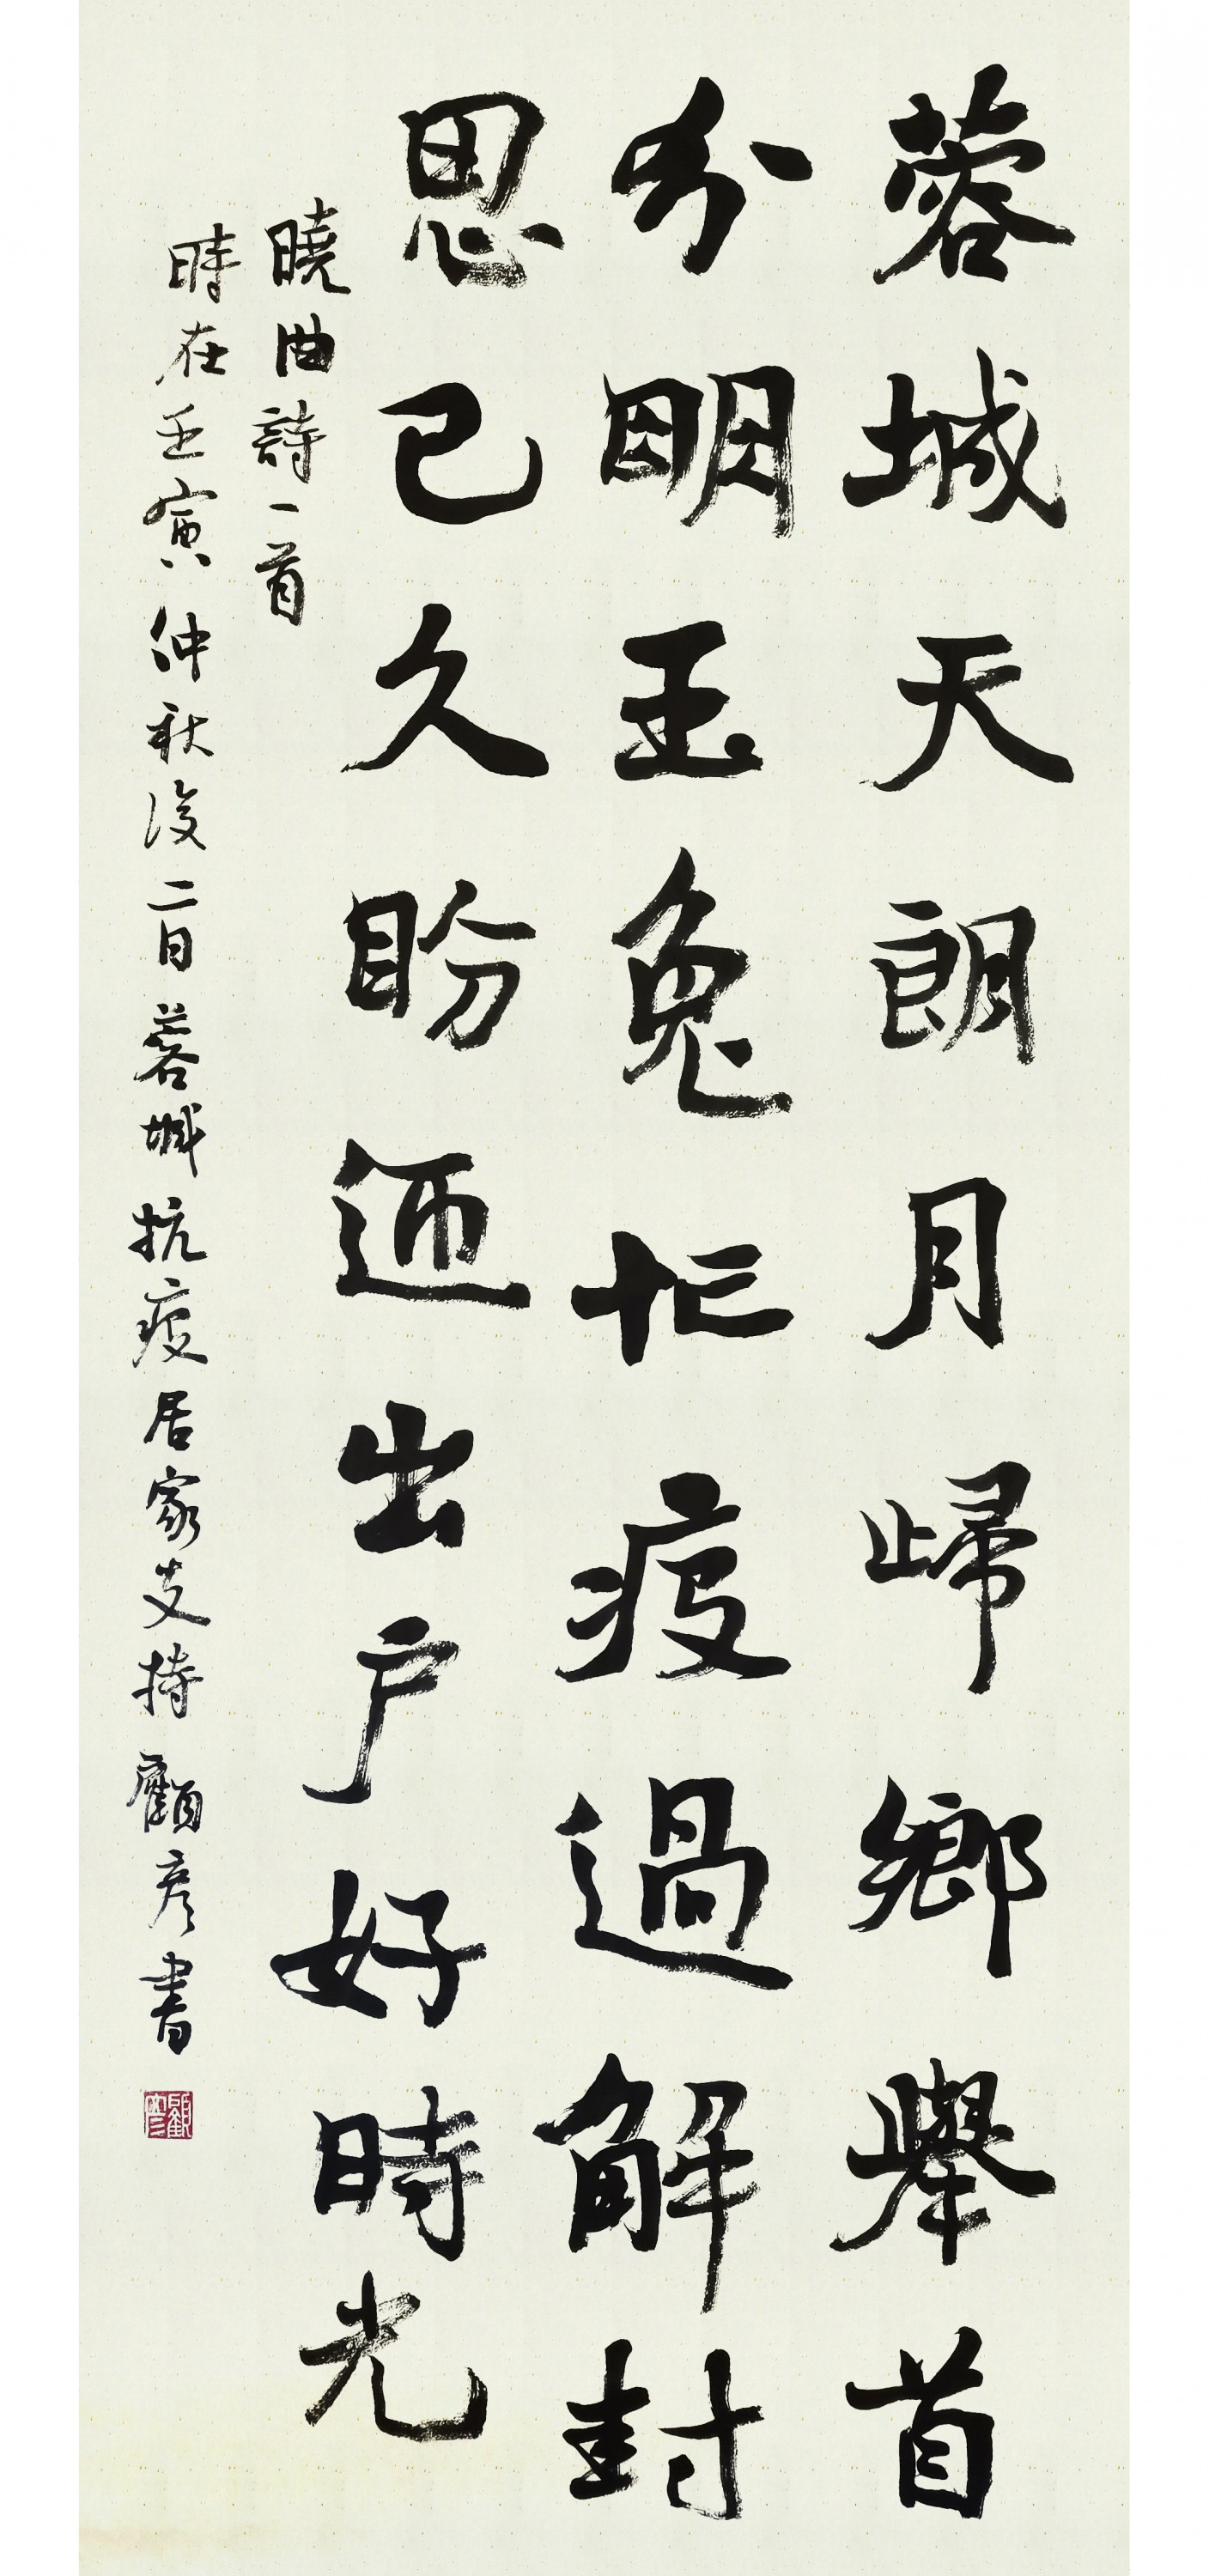 蓉城天朗月歸鄉舉首
分明玉兔忙疫過解封
思已久盼迺出户好時光
曉曲詩一首
時在壬寅仲秋後二日蓉城抗疫居家支持顧彦書
顧彦